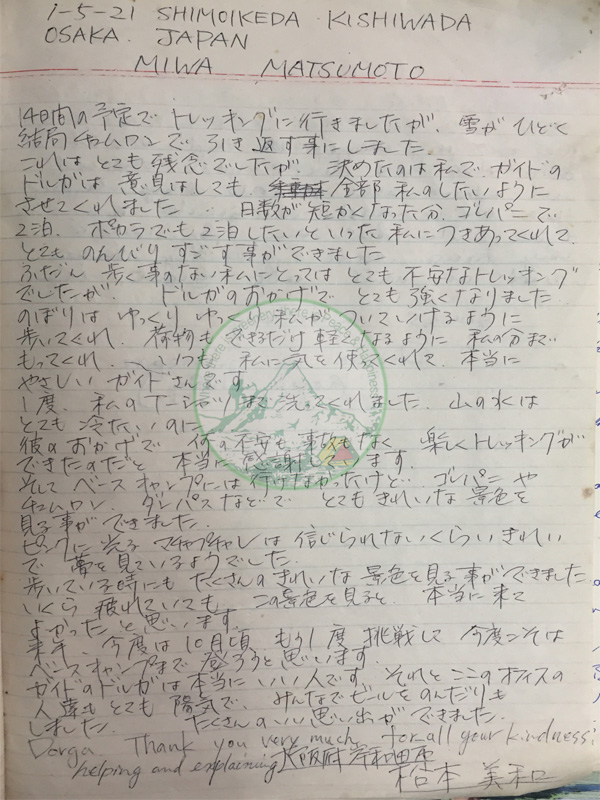 1-5-21 SHIMOIKEDA KISHIWADA
OSAKA. JAPAN
MIWA MATSUMOTO
14日間の予定で トレッキングに行きましたが、雪が ひどく
結局 チョムロンで 引き返す事にしました
これは とても 残念でしたが、 決めたのは私で、ガイドの
ドルガは 意見はしても 全部 私のしたいように
させてくれました 日数が 短かくなった分、ゴレパニーで
2泊、ポカラでも2泊したいといった 私につきあってくれて、
とても のんびり すごす事ができました
ふだん 歩く事のない私にとっては とても 不安なトレッキング
でしたが、 ドルガのおかげで とても強くなりました
のぼりは ゆっくり ゆっくり 私が ついていけるように
歩いてくれ、荷物も できるだけ 軽くなるように 私の分まで
もってくれ、 いつも 私に気を使ってくれて、本当に
やさしい ガイドさんです
1度、私のTーシャツまで洗ってくれました、山の水は
とても 冷たいのに
彼のおかげで 何の不安も 事故もなく 楽しくトレッキングが
できたのだと 本当に 感謝しています.
そして ベースキャンプには 行けなかったけど、ゴレパニーや
チョムロン、ダンパスなどで とてもきれいな 景色を
見る事ができました.
ピンクに光る マチャプチャレは 信じられないくらい きれい
で 夢を見ているようでした.
歩いている時にも たくさんの きれいな 景色を見る事ができました
いくら 疲れていても この景色を見ると、 本当に 来て
よかったと 思います.
来年、今度は 10月頃 もう1度 挑戦して 今度こそは
ベースキャンプまで 登ろうと思います.
ガイドのドルガは本当に いい人です、それと ここの オフィスの
人達も とても 陽気で、みんなで ビールを のんだりも
しました. たくさんの いい思い出ができました.
Dorga. Thank you very much for all your kindness!
helping and explaining 大阪府岸和田市
松本 美和